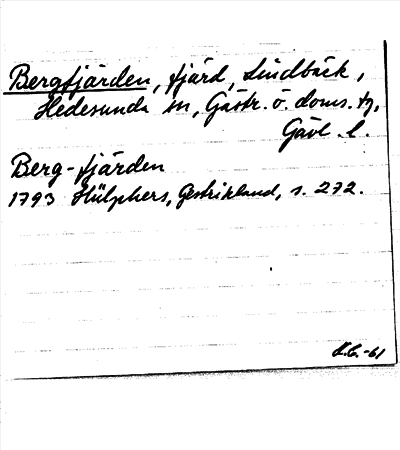 Bergfjärden, fjärd, Lindbäck,
Hedesunda sn, Gästr. ö. doms. tg,
Gävl. l.
Berg-fjärden
1793 Hülphers, Gestrikland, s. 272.
K.C.-61